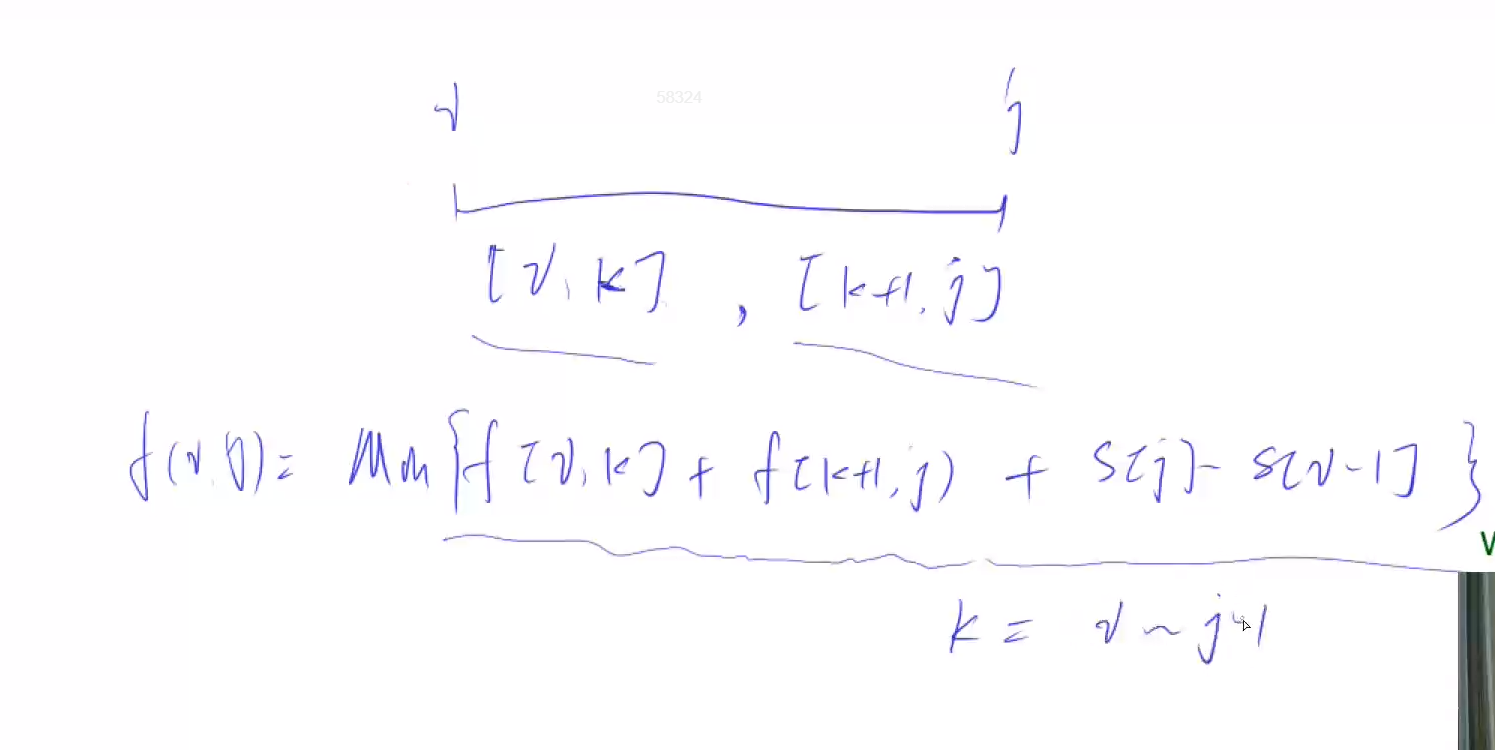 58324
i j
[i, k] , [k+1, j]
f(i, j) = Min{f[i, k] + f[k+1, j) + S[j] - S[i-1] }
k = i ~ j-1